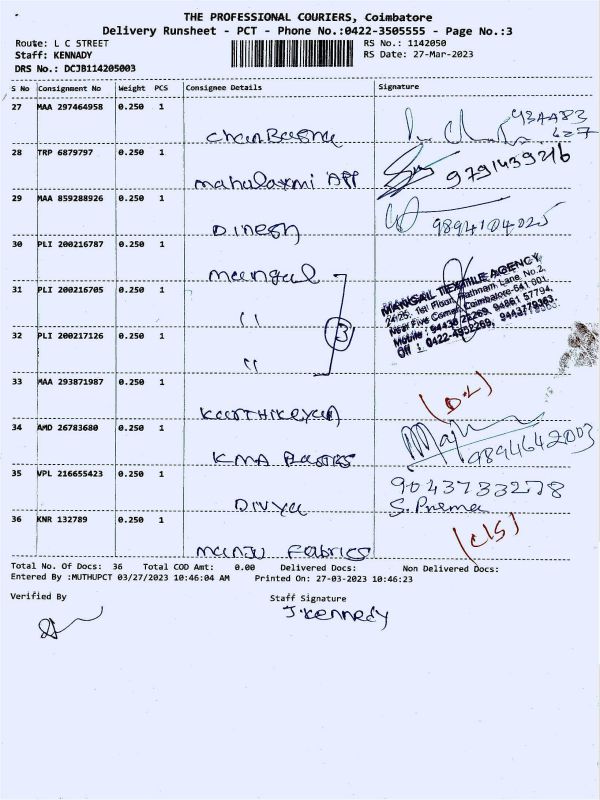 THE PROFESSIONAL COURIERS, Coimbatore
Delivery Runsheet - PCT - Phone No.:0422-3505555 - Page No.:3
Route: L C STREET RS No.: 1142050
Staff: KENNADY RS Date: 27-Mar-2023
DRS No.: DCJB114205003
S No Consignment No Weight PCS Consignee Details Signature
27 MAA 297464958 0.250 1
28 TRP 6879797 0.250 1
mahalaxmi APP 9791439216
29 MAA 859288926 0.250 1
Dinesh 9894104025
30 PLI 200216787 0.250 1
mangal
MANGAL TEXTILE AGENCY
24/25, 1st Floor, Rathnam Lane, No.2,
Near Five Corner, Coimbatore-641 001.
Mobile : 94430 29269, 94861 57794,
Off : 0422-4952269, 9443779363
31 PLI 200216705 0.250 1
"
3
32 PLI 200217126 0.250 1
"
33 MAA 293871987 0.250 1
Karthikeyan (D.L)
34 AMD 26783680 0.250 1
KMA 9894642003
35 VPL 216655423 0.250 1
Divya 9043733278
S. Prema
36 KNR 132789 0.250 1
manju Fabrics (C/S)
Total No. Of Docs: 36 Total COD Amt: 0.00 Delivered Docs: Non Delivered Docs:
Entered By :MUTHUPCT 03/27/2023 10:46:04 AM Printed On: 27-03-2023 10:46:23
Verified By Staff Signature
J. Kennedy